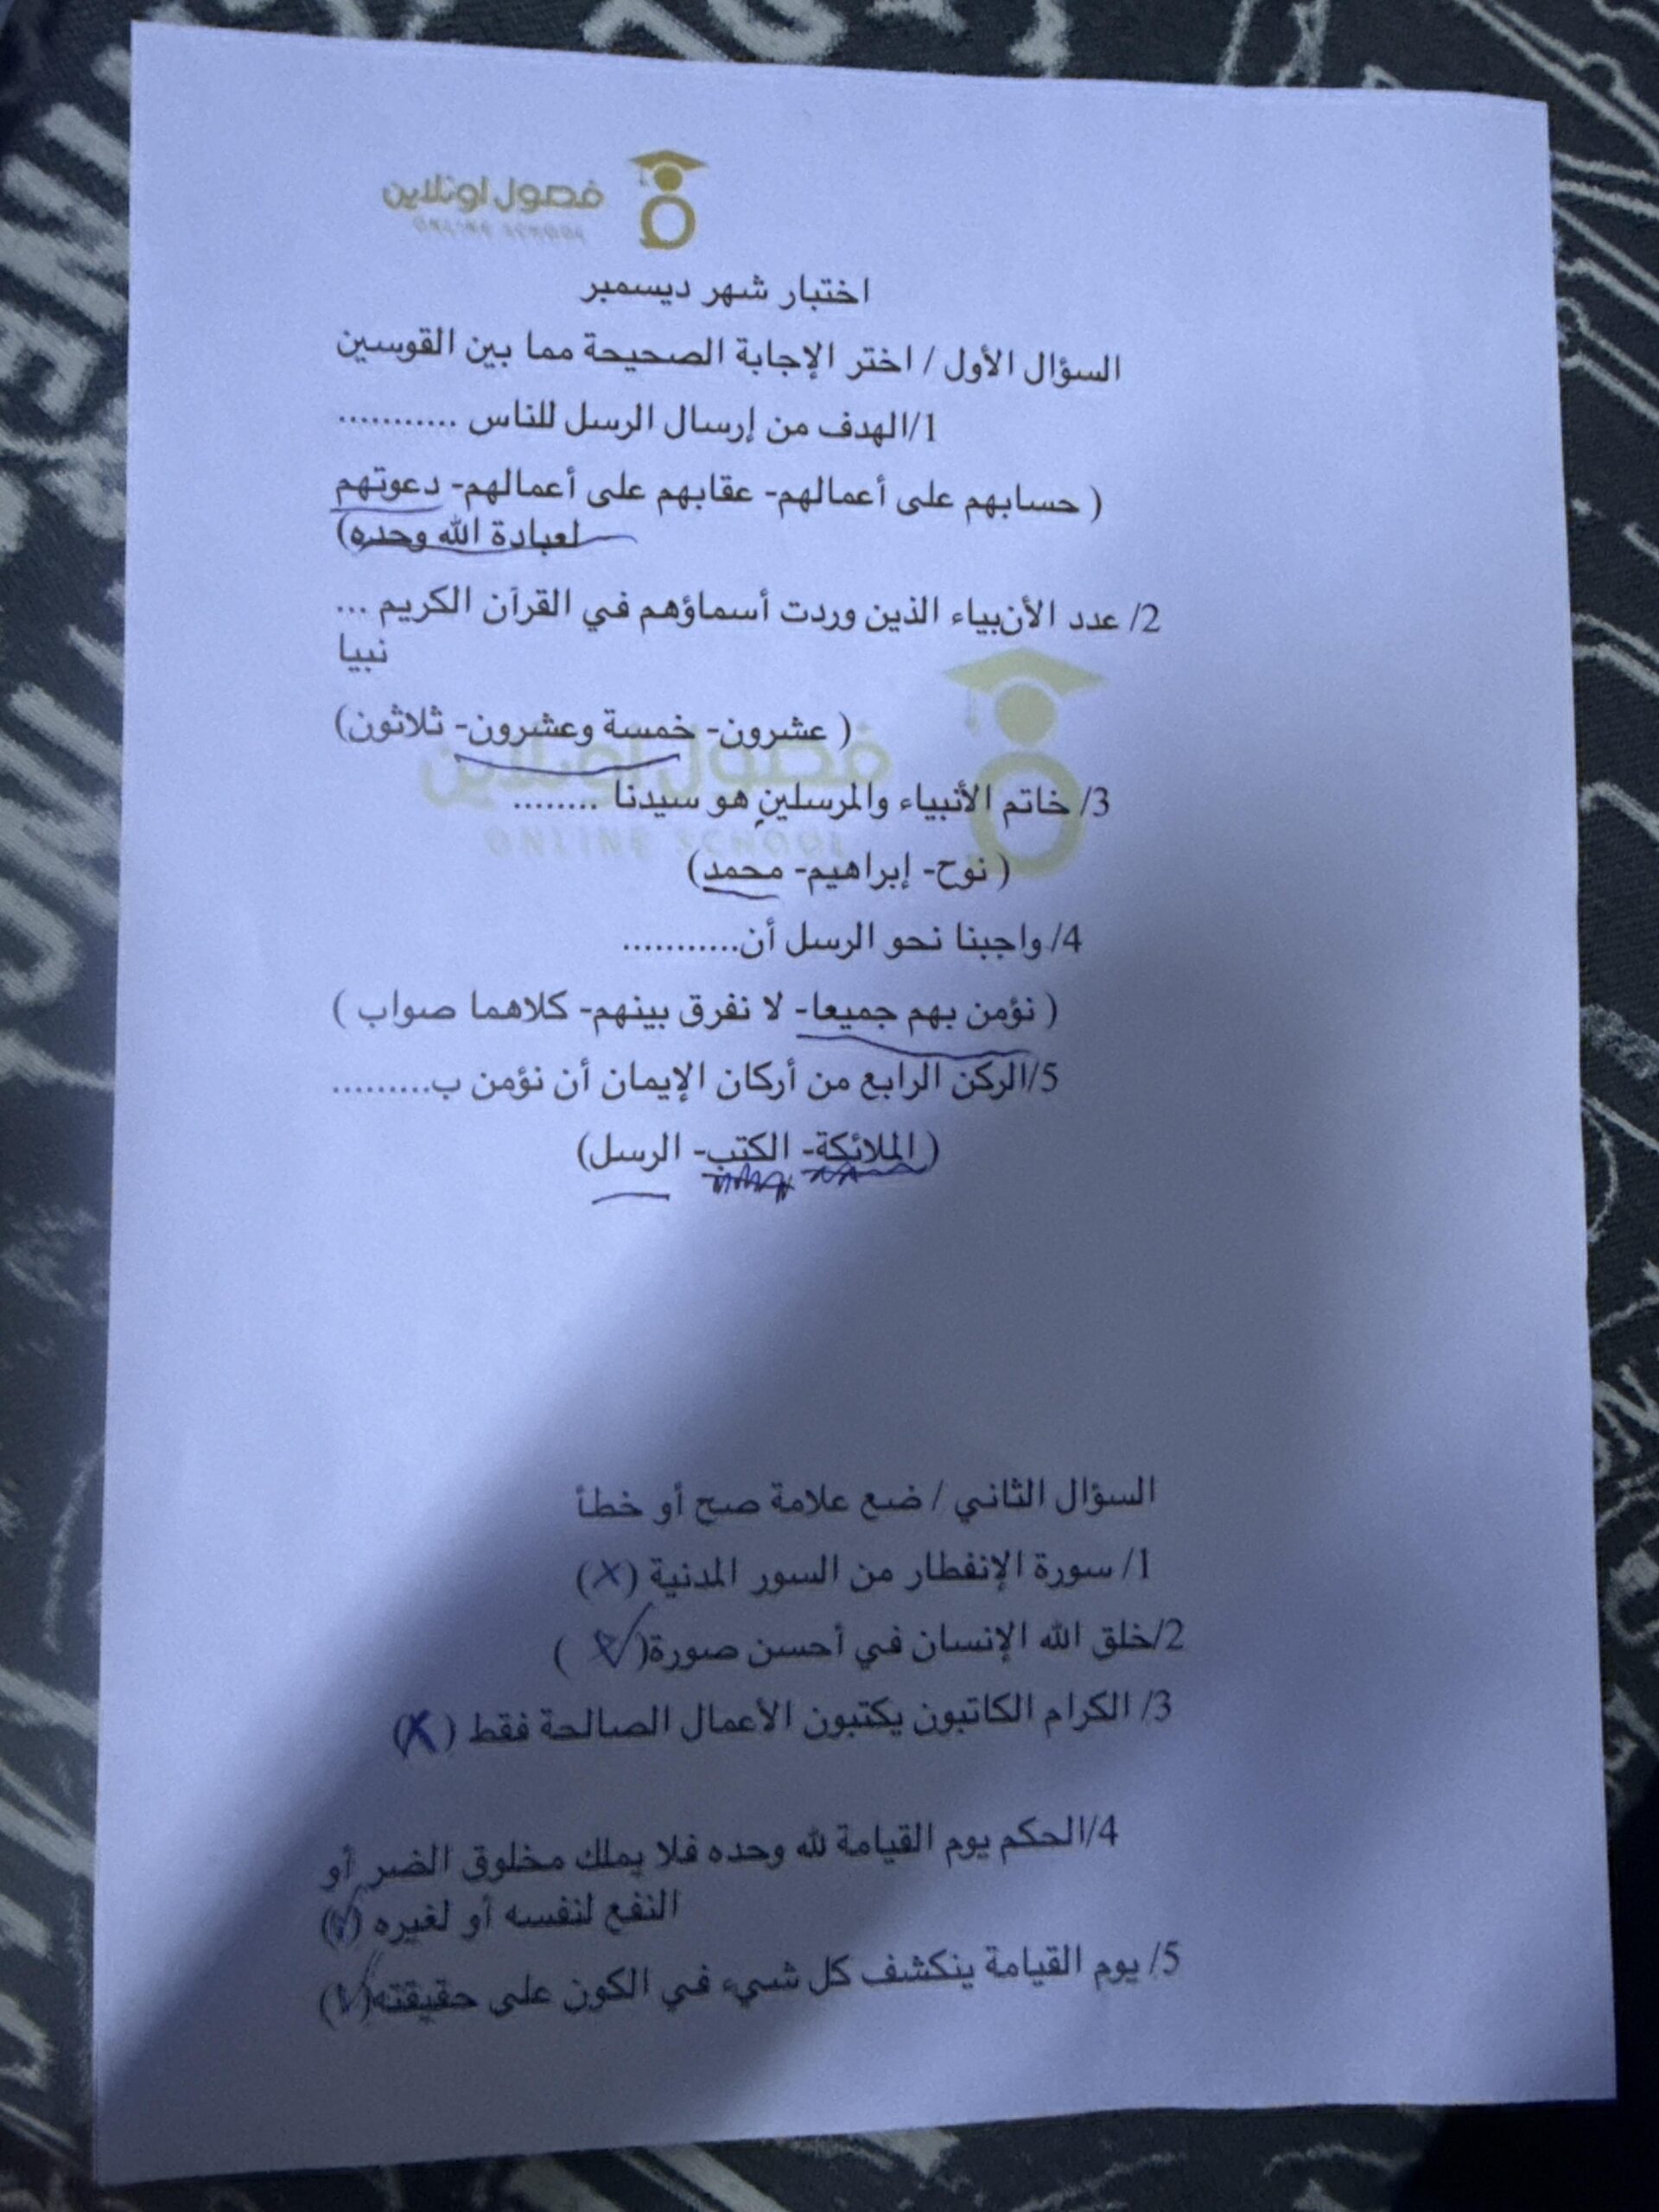 فصول اونلاين
ONLINE SCHOOL
اختبار شهر ديسمبر
السؤال الأول / اختر الإجابة الصحيحة مما بين القوسين
1/الهدف من إرسال الرسل للناس ...........
( حسابهم على أعمالهم- عقابهم على أعمالهم- دعوتهم
لعبادة الله وحده)
2/ عدد الأنبياء الذين وردت أسماؤهم في القرآن الكريم ...
نبيا
( عشرون- خمسة وعشرون- ثلاثون)
فصول اونلاين
3/ خاتم الأنبياء والمرسلين هو سيدنا ........
ONLINE SCHOOL
( نوح- إبراهيم- محمد)
4/ واجبنا نحو الرسل أن...........
( نؤمن بهم جميعا- لا نفرق بينهم- كلاهما صواب )
5/الركن الرابع من أركان الإيمان أن نؤمن ب.........
( الملائكة- الكتب- الرسل)
السؤال الثاني / ضع علامة صح أو خطأ
1/ سورة الإنفطار من السور المدنية (X)
2/خلق الله الإنسان في أحسن صورة(✓ )
3/ الكرام الكاتبون يكتبون الأعمال الصالحة فقط (X)
4/الحكم يوم القيامة لله وحده فلا يملك مخلوق الضر أو
النفع لنفسه أو لغيره (✓)
5/ يوم القيامة ينكشف كل شيء في الكون على حقيقته(✓)